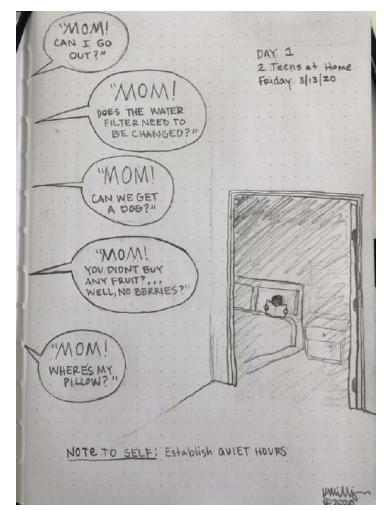 "MOM!
CAN I GO
OUT?"
DAY 1
2 Teens at Home
Friday 3/13/20
"MOM!
DOES THE WATER
FILTER NEED TO
BE CHANGED?"
"MOM!
CAN WE GET
A DOG?"
"MOM!
YOU DIDNT BUY
ANY FRUIT?...
WELL, NO BERRIES?"
"MOM!
WHERE'S MY
PILLOW?"
NOTE TO SELF: Establish QUIET HOURS
©2020